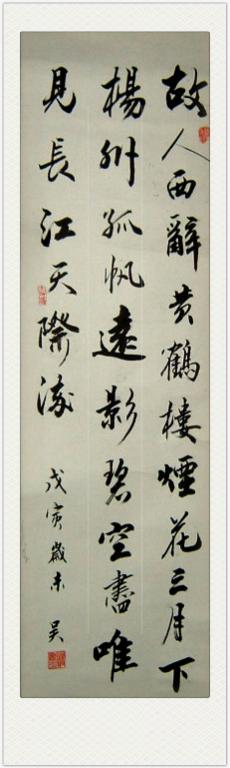 故人西辭黃鶴樓煙花三月下
楊州孤帆遠影碧空盡唯
見長江天際流
戊寅歲末 吴